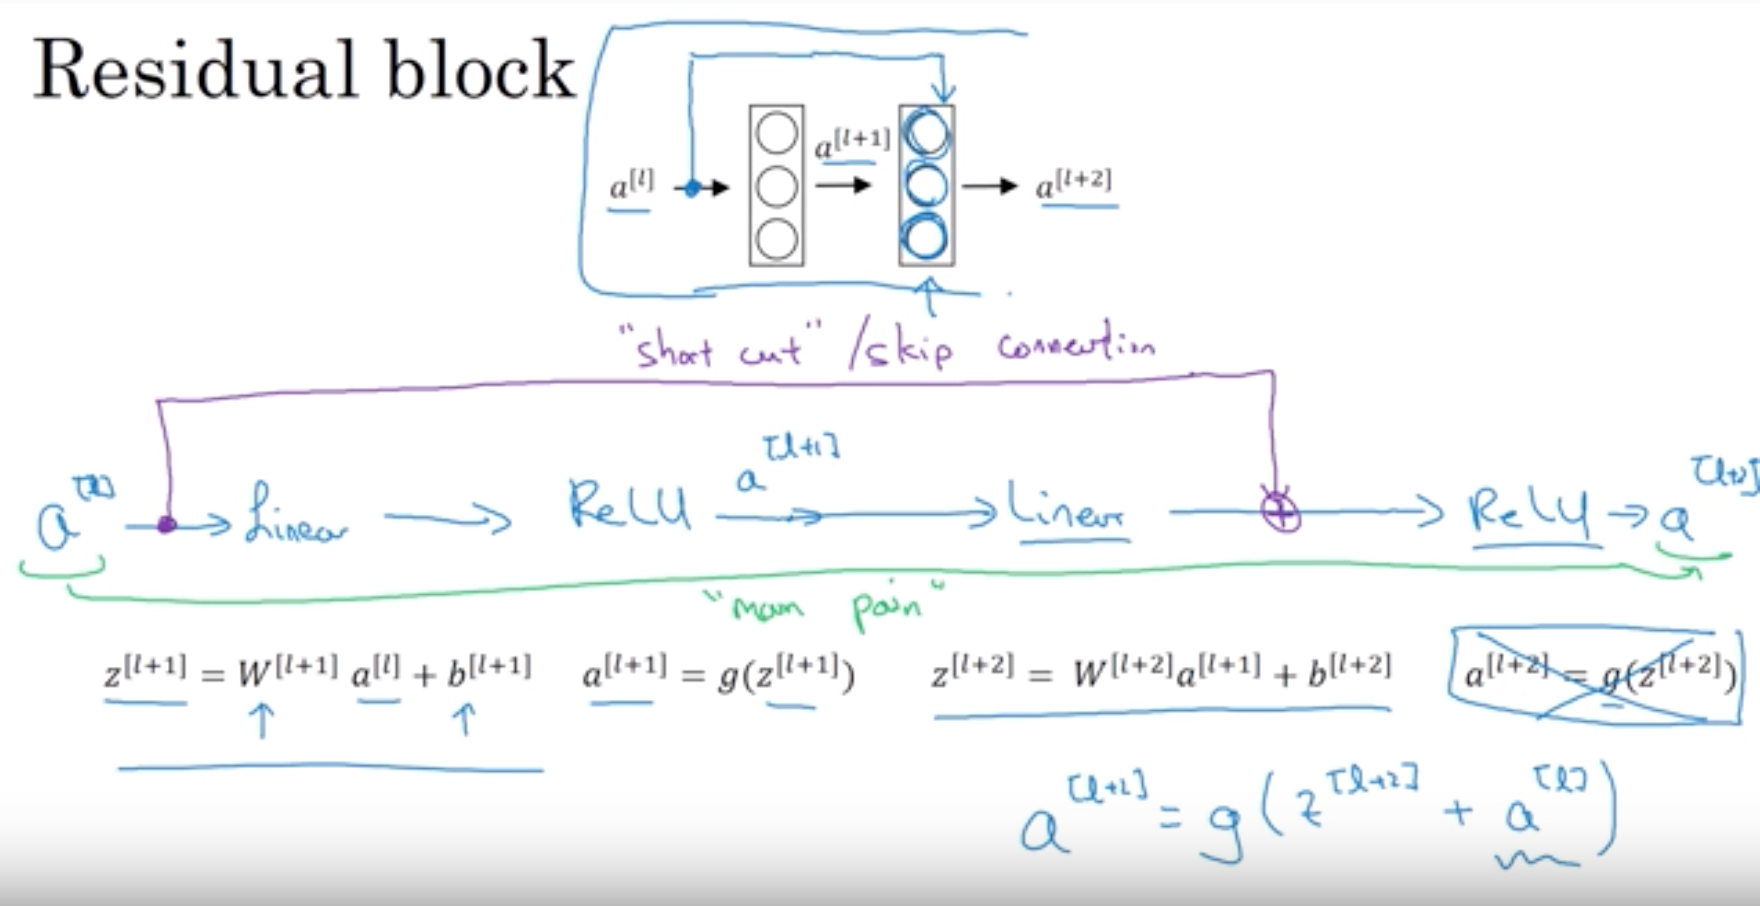 Residual block
a[l] a[l+1] a[l+2]
"short cut" / skip connection
a[l] Linear ReLU a[l+1] Linear ReLU a[l+2]
"main path"
z[l+1] = W[l+1] a[l] + b[l+1] a[l+1] = g(z[l+1]) z[l+2] = W[l+2]a[l+1] + b[l+2] a[l+2] = g(z[l+2])
a[l+2] = g(z[l+2] + a[l])